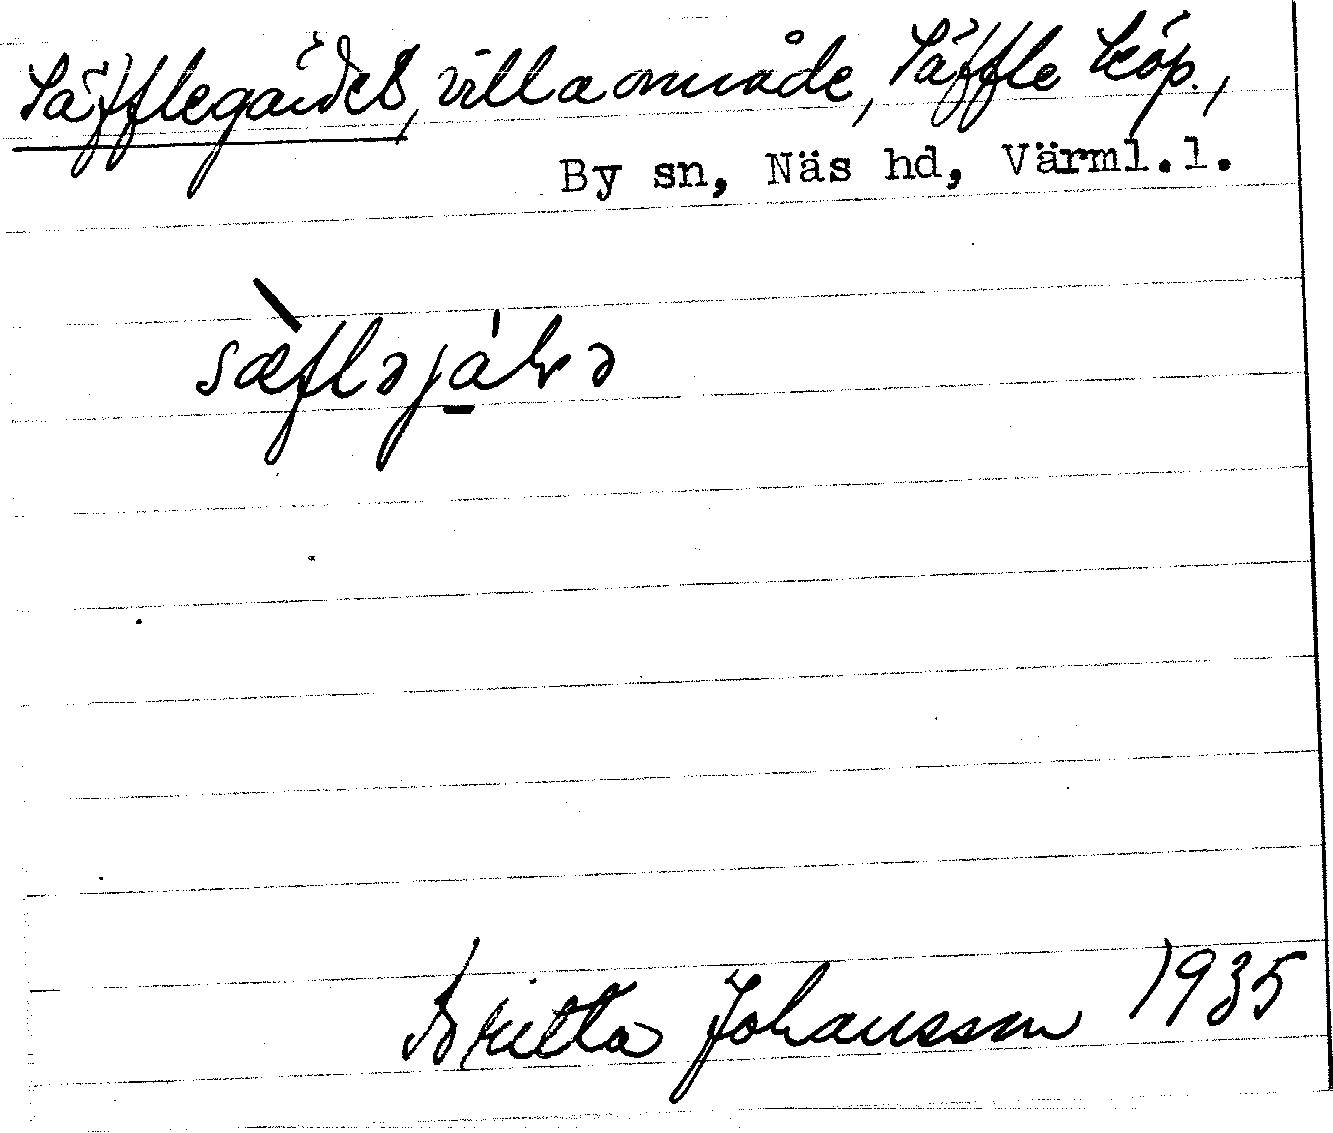 Säfflegärdet, villaområde, Säffle köp.,
By sn, Näs hd, Värml.l.
sæ̀fləjálvə
Britta Johansson 1935